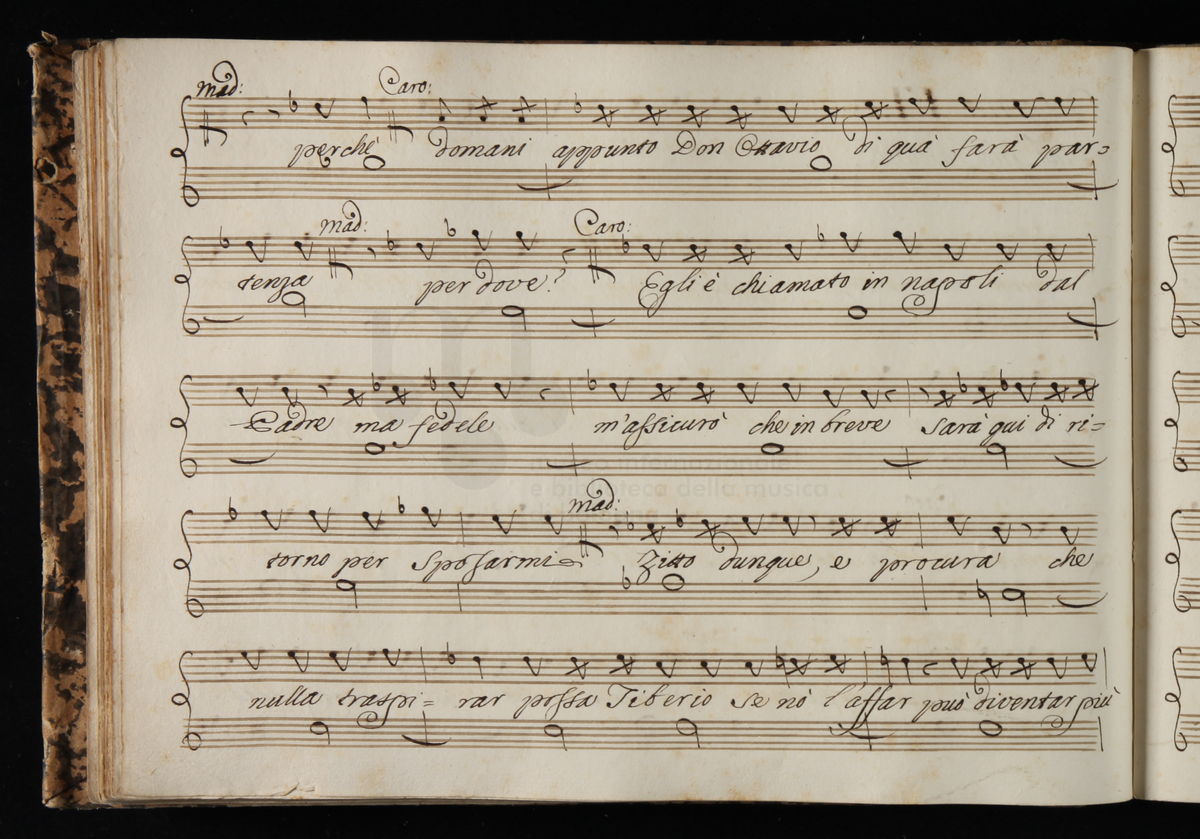 Mad: Caro:
perchè domani appunto Don Ottavio di quà farà par=
Mad: Caro:
tenza per dove? Egli è chiamato in napoli dal
Padre ma fedele m'assicurò che in breve sarà qui di ri=
mad:
torno per sposarmi Zitto dunque, e procura che
nulla traspi= rar possa Tiberio se nò l'affar può diventar più
e biblioteca della musica